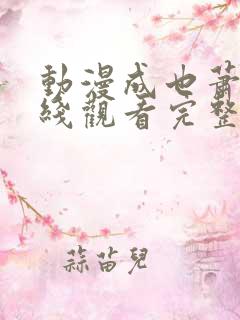 動漫成也蕭
綫觀看完整
蒜苗兒